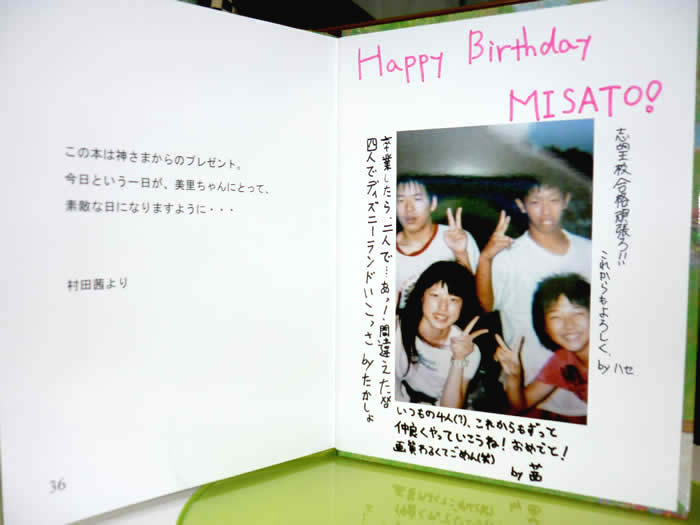 この本は神さまからのプレゼント。
今日という一日が、美里ちゃんにとって、
素敵な日になりますように・・・
村田茜より
36
Happy Birthday
MISATO!
卒業したら、二人で…あっ!間違えた(笑)
四人でディズニーランドいこっさ byたかしょ
志望校合格頑張ろ!!
これからもよろしく。
by ハセ
いつもの4人(?)、これからもずっと
仲良くやっていこうね!おめでと!
画質わるくてごめん(笑)
by 茜